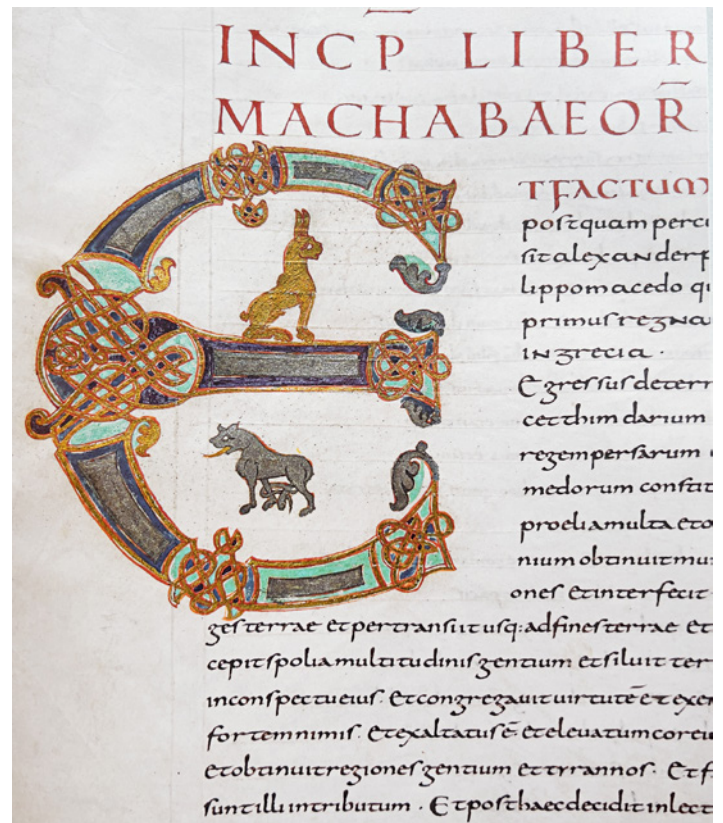 INCP LIBER
MACHABAEOR̄
E
T FACTUM
postquam perci
sit alexander p
lippo macedo qi
primus regna
in grecia
Egressus de terr
cetthim darium
regem persarum
medorum constit
proelia multa et o
nium obtinuit mu
ones et interfecit
ges terrae et pertransiit usq: ad fines terrae et
cepit spolia multitudinis gentium et siluit ter
in conspectu eius. Et congregauit uirtutē et exer
fortem nimis. Et exaltatus ē et eleuatum cor eiu
et obtinuit regiones gentium et tyrannos. Et f
sunt illi in tributum. Et post haec decidit in lect